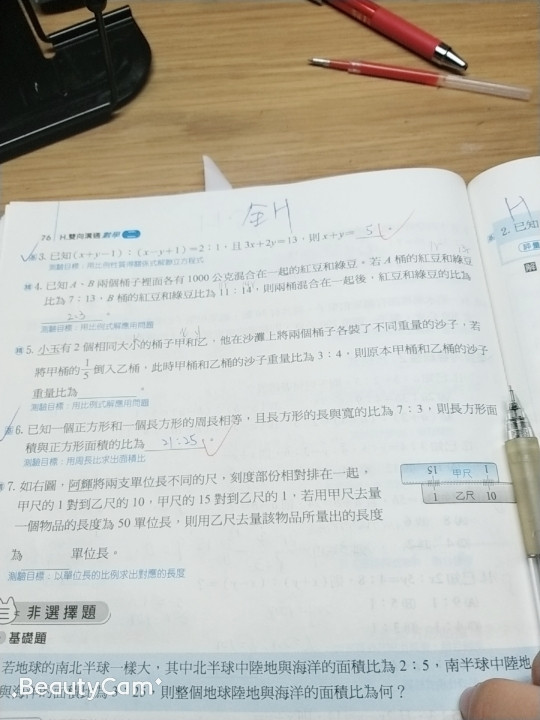 全H
76 H.雙向溝通 數學
3. 已知(x+y-1):(x-y+1)=2:1,且 3x+2y=13,則 x+y= 5 。
測驗目標:用比例性質用關係式解聯立方程式
4. 已知 A、B 兩個桶子裡面各有 1000 公克混合在一起的紅豆和綠豆。若 A 桶的紅豆和綠豆
比為 7:13,B 桶的紅豆和綠豆比為 11:14,則兩桶混合在一起後,紅豆和綠豆的比為
2:3 。
測驗目標:用比例式解應用問題
5. 小玉有 2 個相同大小的桶子甲和乙,他在沙灘上將兩個桶子各裝了不同重量的沙子,若
將甲桶的 1/5 倒入乙桶,此時甲桶和乙桶的沙子重量比為 3:4,則原本甲桶和乙桶的沙子
重量比為 。
測驗目標:用比例式解應用問題
6. 已知一個正方形和一個長方形的周長相等,且長方形的長與寬的比為 7:3,則長方形面
積與正方形面積的比為 21:25 。
測驗目標:用周長比求出面積比
7. 如右圖,阿輝將兩支單位長不同的尺,刻度部份相對排在一起。
甲尺的 1 對到乙尺的 10,甲尺的 15 對到乙尺的 1,若用甲尺去量
一個物品的長度為 50 單位長,則用乙尺去量該物品所量出的長度
為 單位長。
測驗目標:以單位長的比例求出對應的長度
15 甲尺 1
1 乙尺 10
非選擇題
基礎題
若地球的南北半球一樣大,其中北半球中陸地與海洋的面積比為 2:5,南半球中陸地
則整個地球陸地與海洋的面積比為何?
BeautyCam
H
2. 已知
評量
解